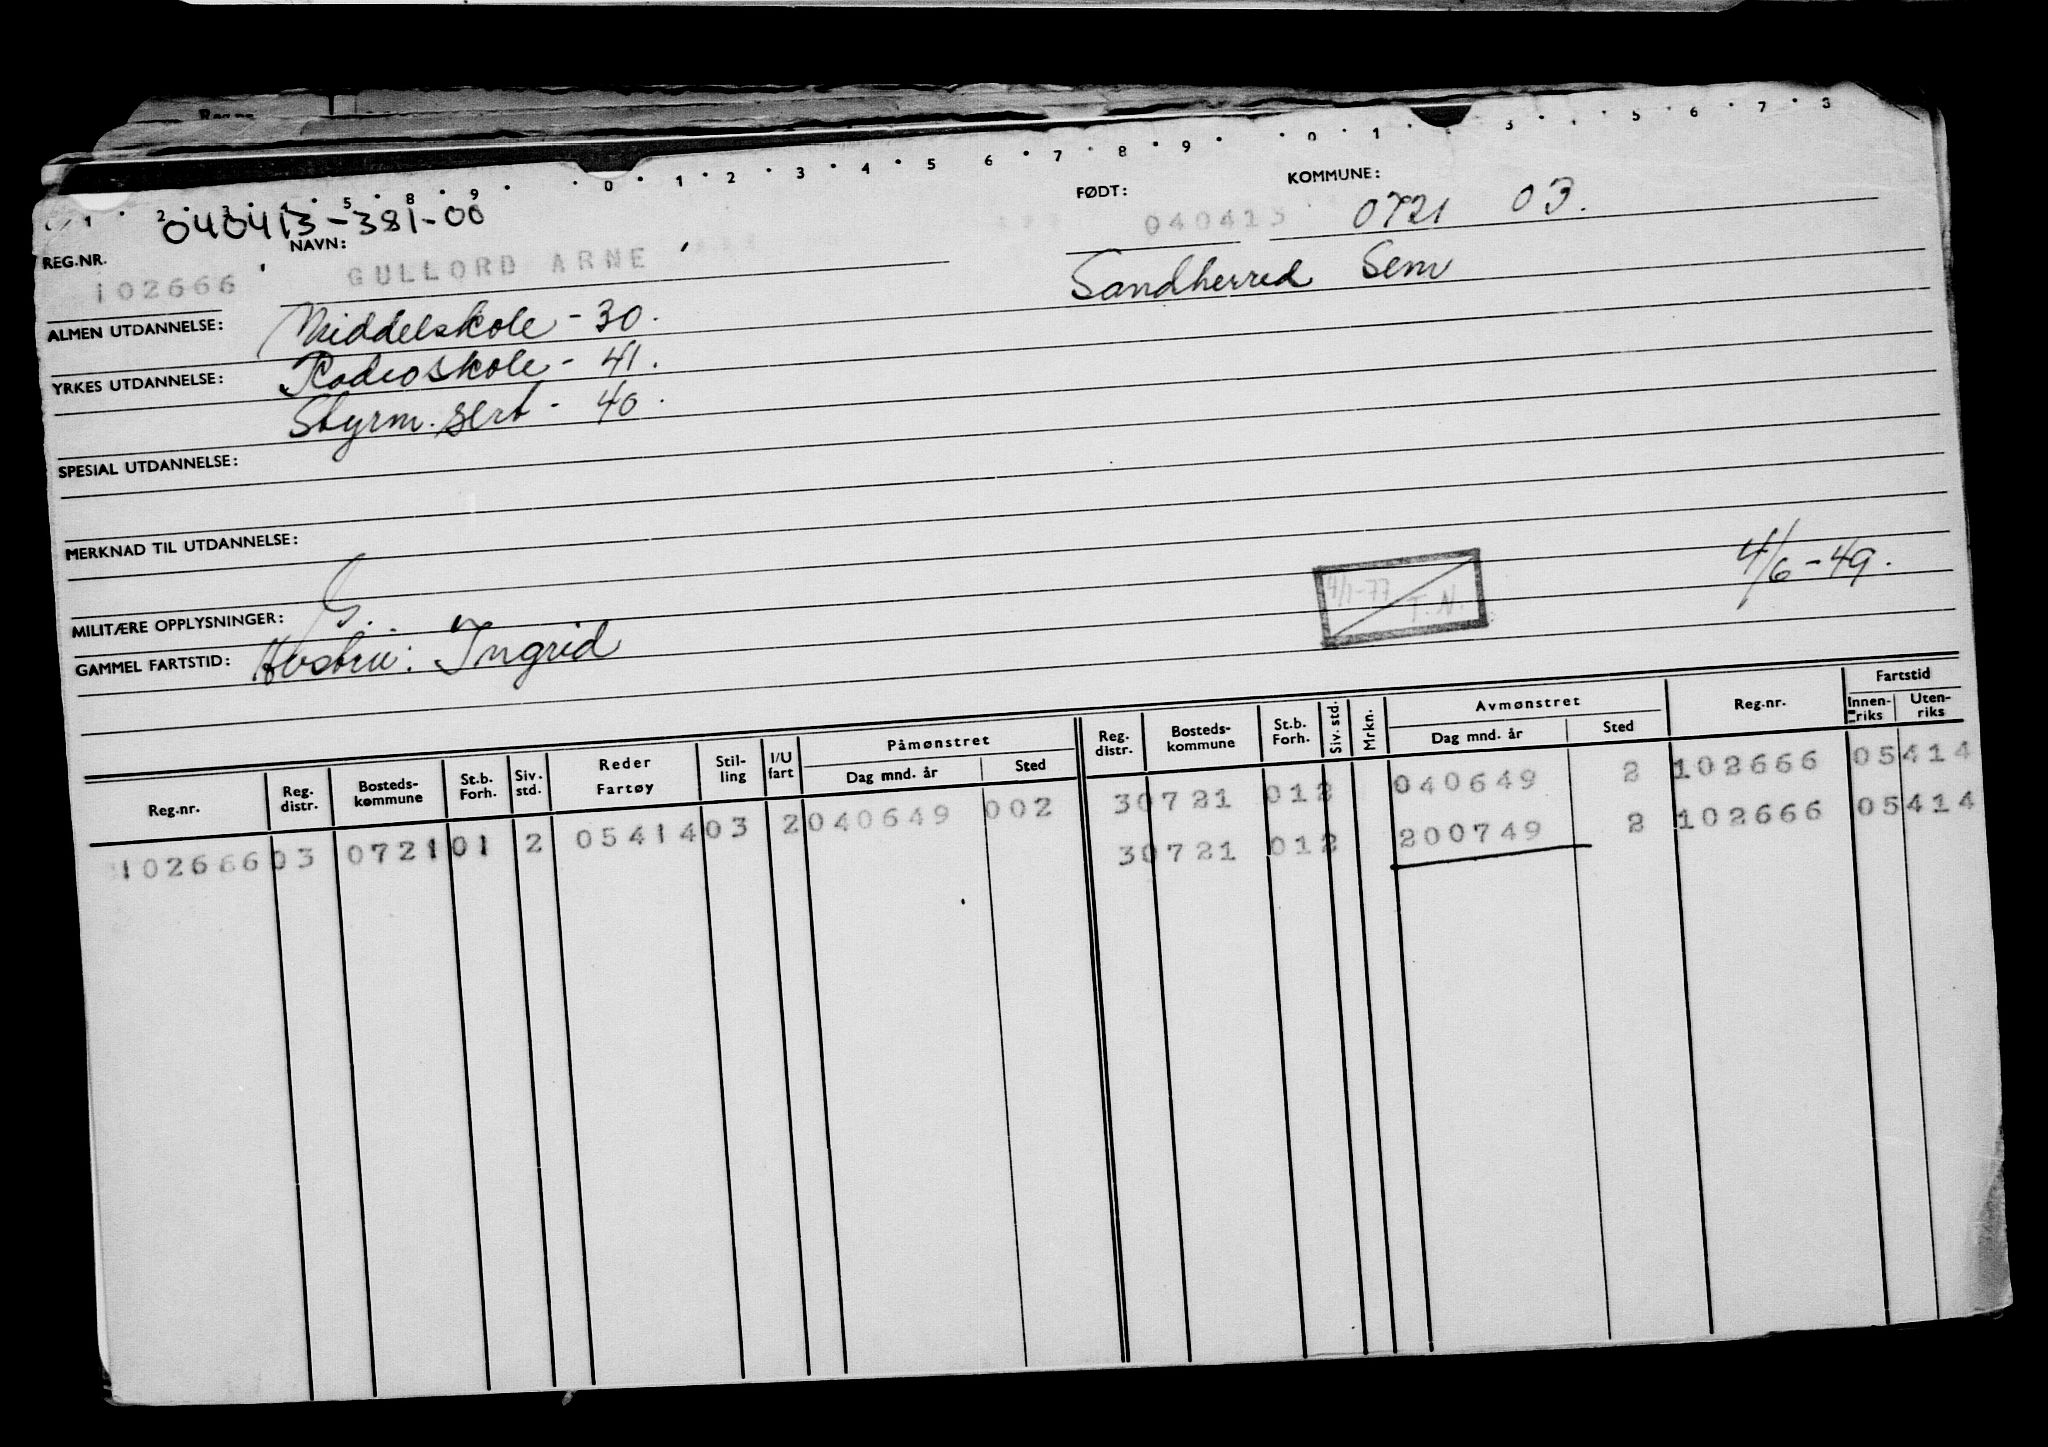 1 2 3 4 5 8 9 0 1 2 3 4 5 6 7 8 9 0 1 3 5 6 7 8
040413-381-00
REG.NR. NAVN: FØDT: KOMMUNE:
102666 GULLORD ARNE 040413 0721 03.
Sandherred Sem
ALMEN UTDANNELSE: Middelskole - 30.
YRKES UTDANNELSE: Radioskole - 41.
Styrm. sert - 40.
SPESIAL UTDANNELSE:
MERKNAD TIL UTDANNELSE:
4/1-77 T.N.
4/6-49.
MILITÆRE OPPLYSNINGER: G.
GAMMEL FARTSTID: Hustru: Ingrid
Reg.nr. Reg. distr. Bosteds-kommune St.b. Forh. Siv. std. Reder Fartøy Stil-ling I/U fart Påmønstret Dag mnd. år Sted Reg. distr. Bosteds-kommune St.b. Forh. Siv. std. Mrkn. Avmønstret Dag mnd. år Sted Reg.nr. Fartstid Innen-riks Uten-riks
102666 03 0721 01 2 05414 03 2 040649 002 3 0721 01 2 040649 2 102666 05414
3 0721 01 2 200749 2 102666 05414